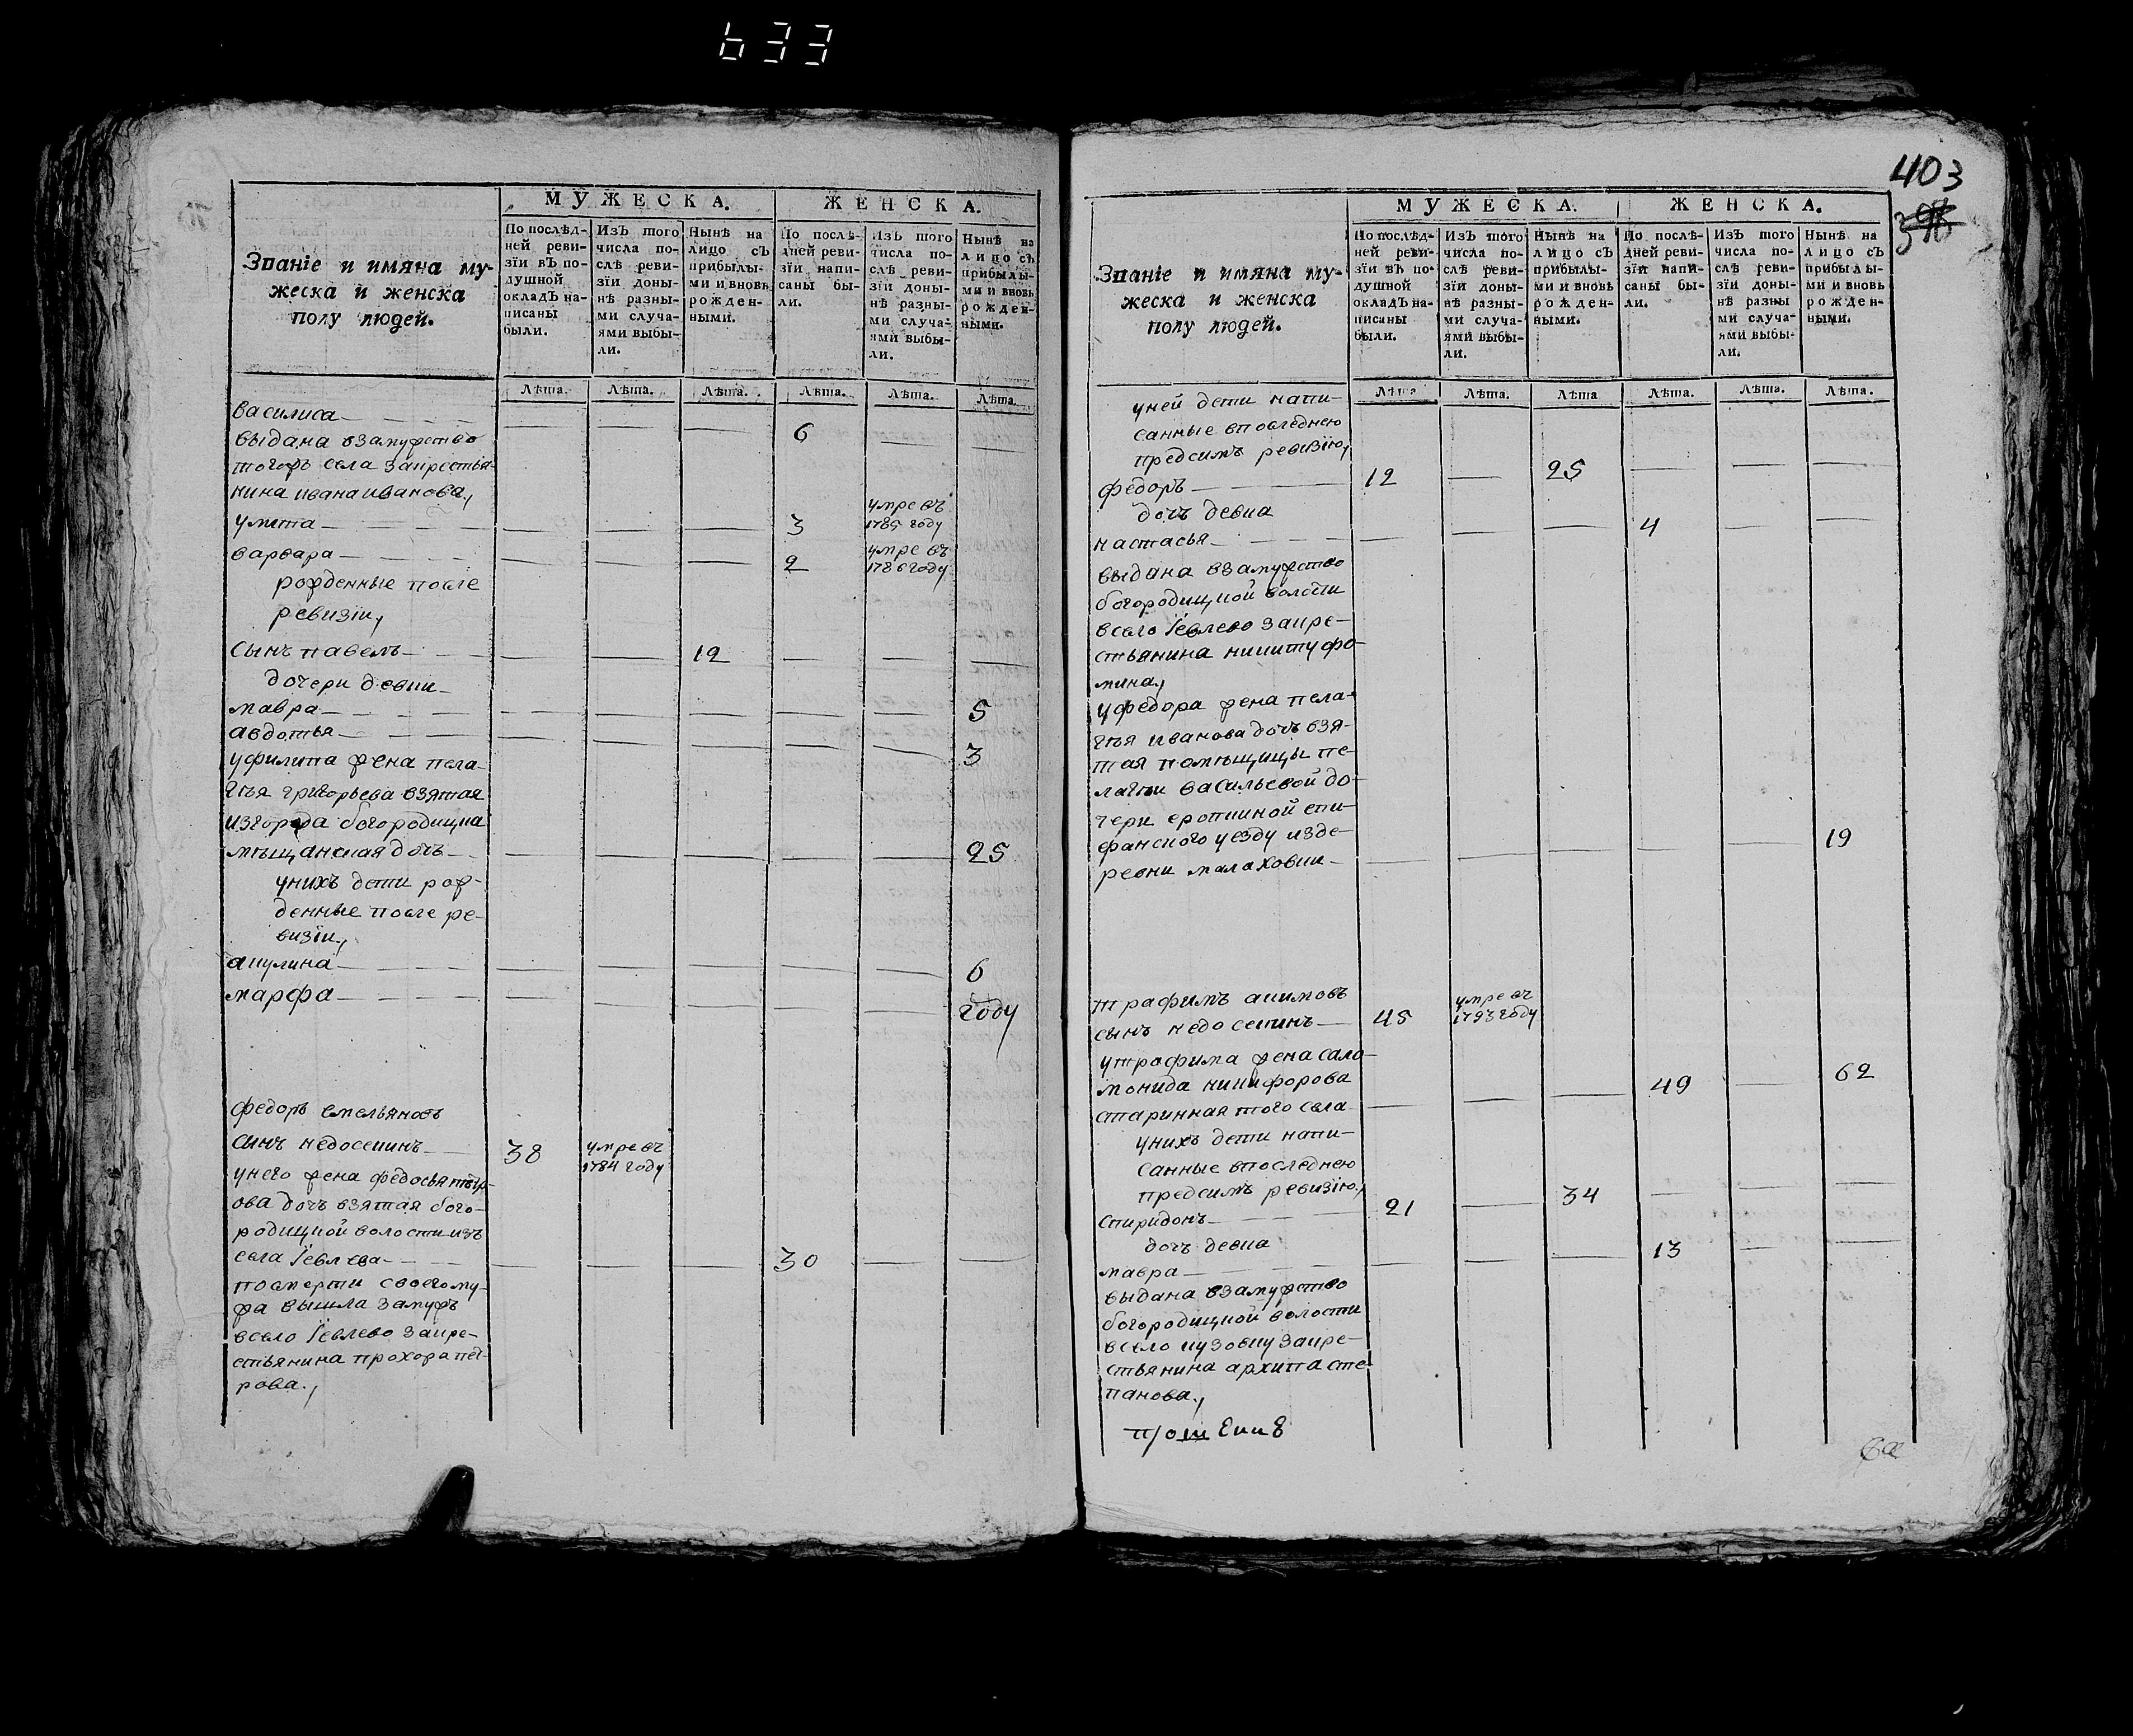 633
МУЖЕСКА. ЖЕНСКА.
Званіе и имяна му-
жеска и женска
полу людей.
По послѣд-
ней реви-
зіи въ по-
душной
окладъ на-
писаны
были.
Изъ того
числа по-
слѣ реви-
зіи доны-
нѣ разны-
ми случа-
ями выбы-
ли.
Нынѣ на
лицо съ
прибылы-
ми и вновь
рожден-
ными.
По послѣ-
дней реви-
зіи напи-
саны бы-
ли.
Изъ того
числа по-
слѣ реви-
зіи доны-
нѣ разны-
ми случа-
ями выбы-
ли.
Нынѣ на
лицо съ
прибылы-
ми и вновь
рожден-
ными.
Лѣта. Лѣта. Лѣта. Лѣта. Лѣта. Лѣта.
василиса 6
выдана взамужство
тогожъ села закрестья-
нина ивана иванова,
улита 3 умре въ 1785 году
варвара 2 умре въ 1786 году
рожденные после
ревизіи,
сынъ павелъ 12
дочери девки
мавра 5
авдотья 3
уфилипа жена пела-
гѣя григорьева взятая
изгорода богородицка
мѣщанская дочь 25
унихъ дети рож-
денные после ре-
визіи,
акулина 6
марфа году
федоръ емельяновъ
сынъ недосекинъ 38 умре въ 1784 году
унего жена федосья пѣтр-
ова дочь взятая бого-
родицкой волости изъ
села Їевлева 30
посмерти своего му-
жа вышла замужъ
всело Їевлево закре-
стьянина прохора пет-
рова.,
403
МУЖЕСКА. ЖЕНСКА.
Званіе и имяна му-
жеска и женска
полу людей.
По послѣд-
ней реви-
зіи въ по-
душной
окладъ на-
писаны
были.
Изъ того
числа по-
слѣ реви-
зіи доны-
нѣ разны-
ми случа-
ями выбы-
ли.
Нынѣ на
лицо съ
прибылы-
ми и вновь
рожден-
ными.
По послѣ-
дней реви-
зіи напи-
саны бы-
ли.
Изъ того
числа по-
слѣ реви-
зіи доны-
нѣ разны
ми случа-
ями выбы-
ли.
Нынѣ на
лицо съ
прибылы-
ми и вновь
рожден-
ными.
Лѣта Лѣта. Лѣта Лѣта. Лѣта. Лѣта.
уней дети напи-
санные впоследнею
предсимъ ревизію,
федоръ 12 25
дочь девка
настасья 4
выдана взамужство
богородицкой волости
всело Їевлево закре-
стьянина никиту фо-
мина,
уфедора жена пела-
гѣя иванова дочь взя-
тая помѣщицы пе-
лагѣи васильевой до-
чери еропкиной епи-
фанского уезду изде-
ревни малаховки 19
трафимъ акимовъ
сынъ недосекинъ 45 умре въ 1793 году
утрафима жена сало-
монида никифорова
старинная того села 49 62
унихъ дети напи-
санные впоследнею
предсимъ ревизію,
спиридонъ 21 34
дочь девка
мавра 13
выдана взамужство
богородицкой волости
всело кузовку закре-
стьянина архипа сте-
панова.,